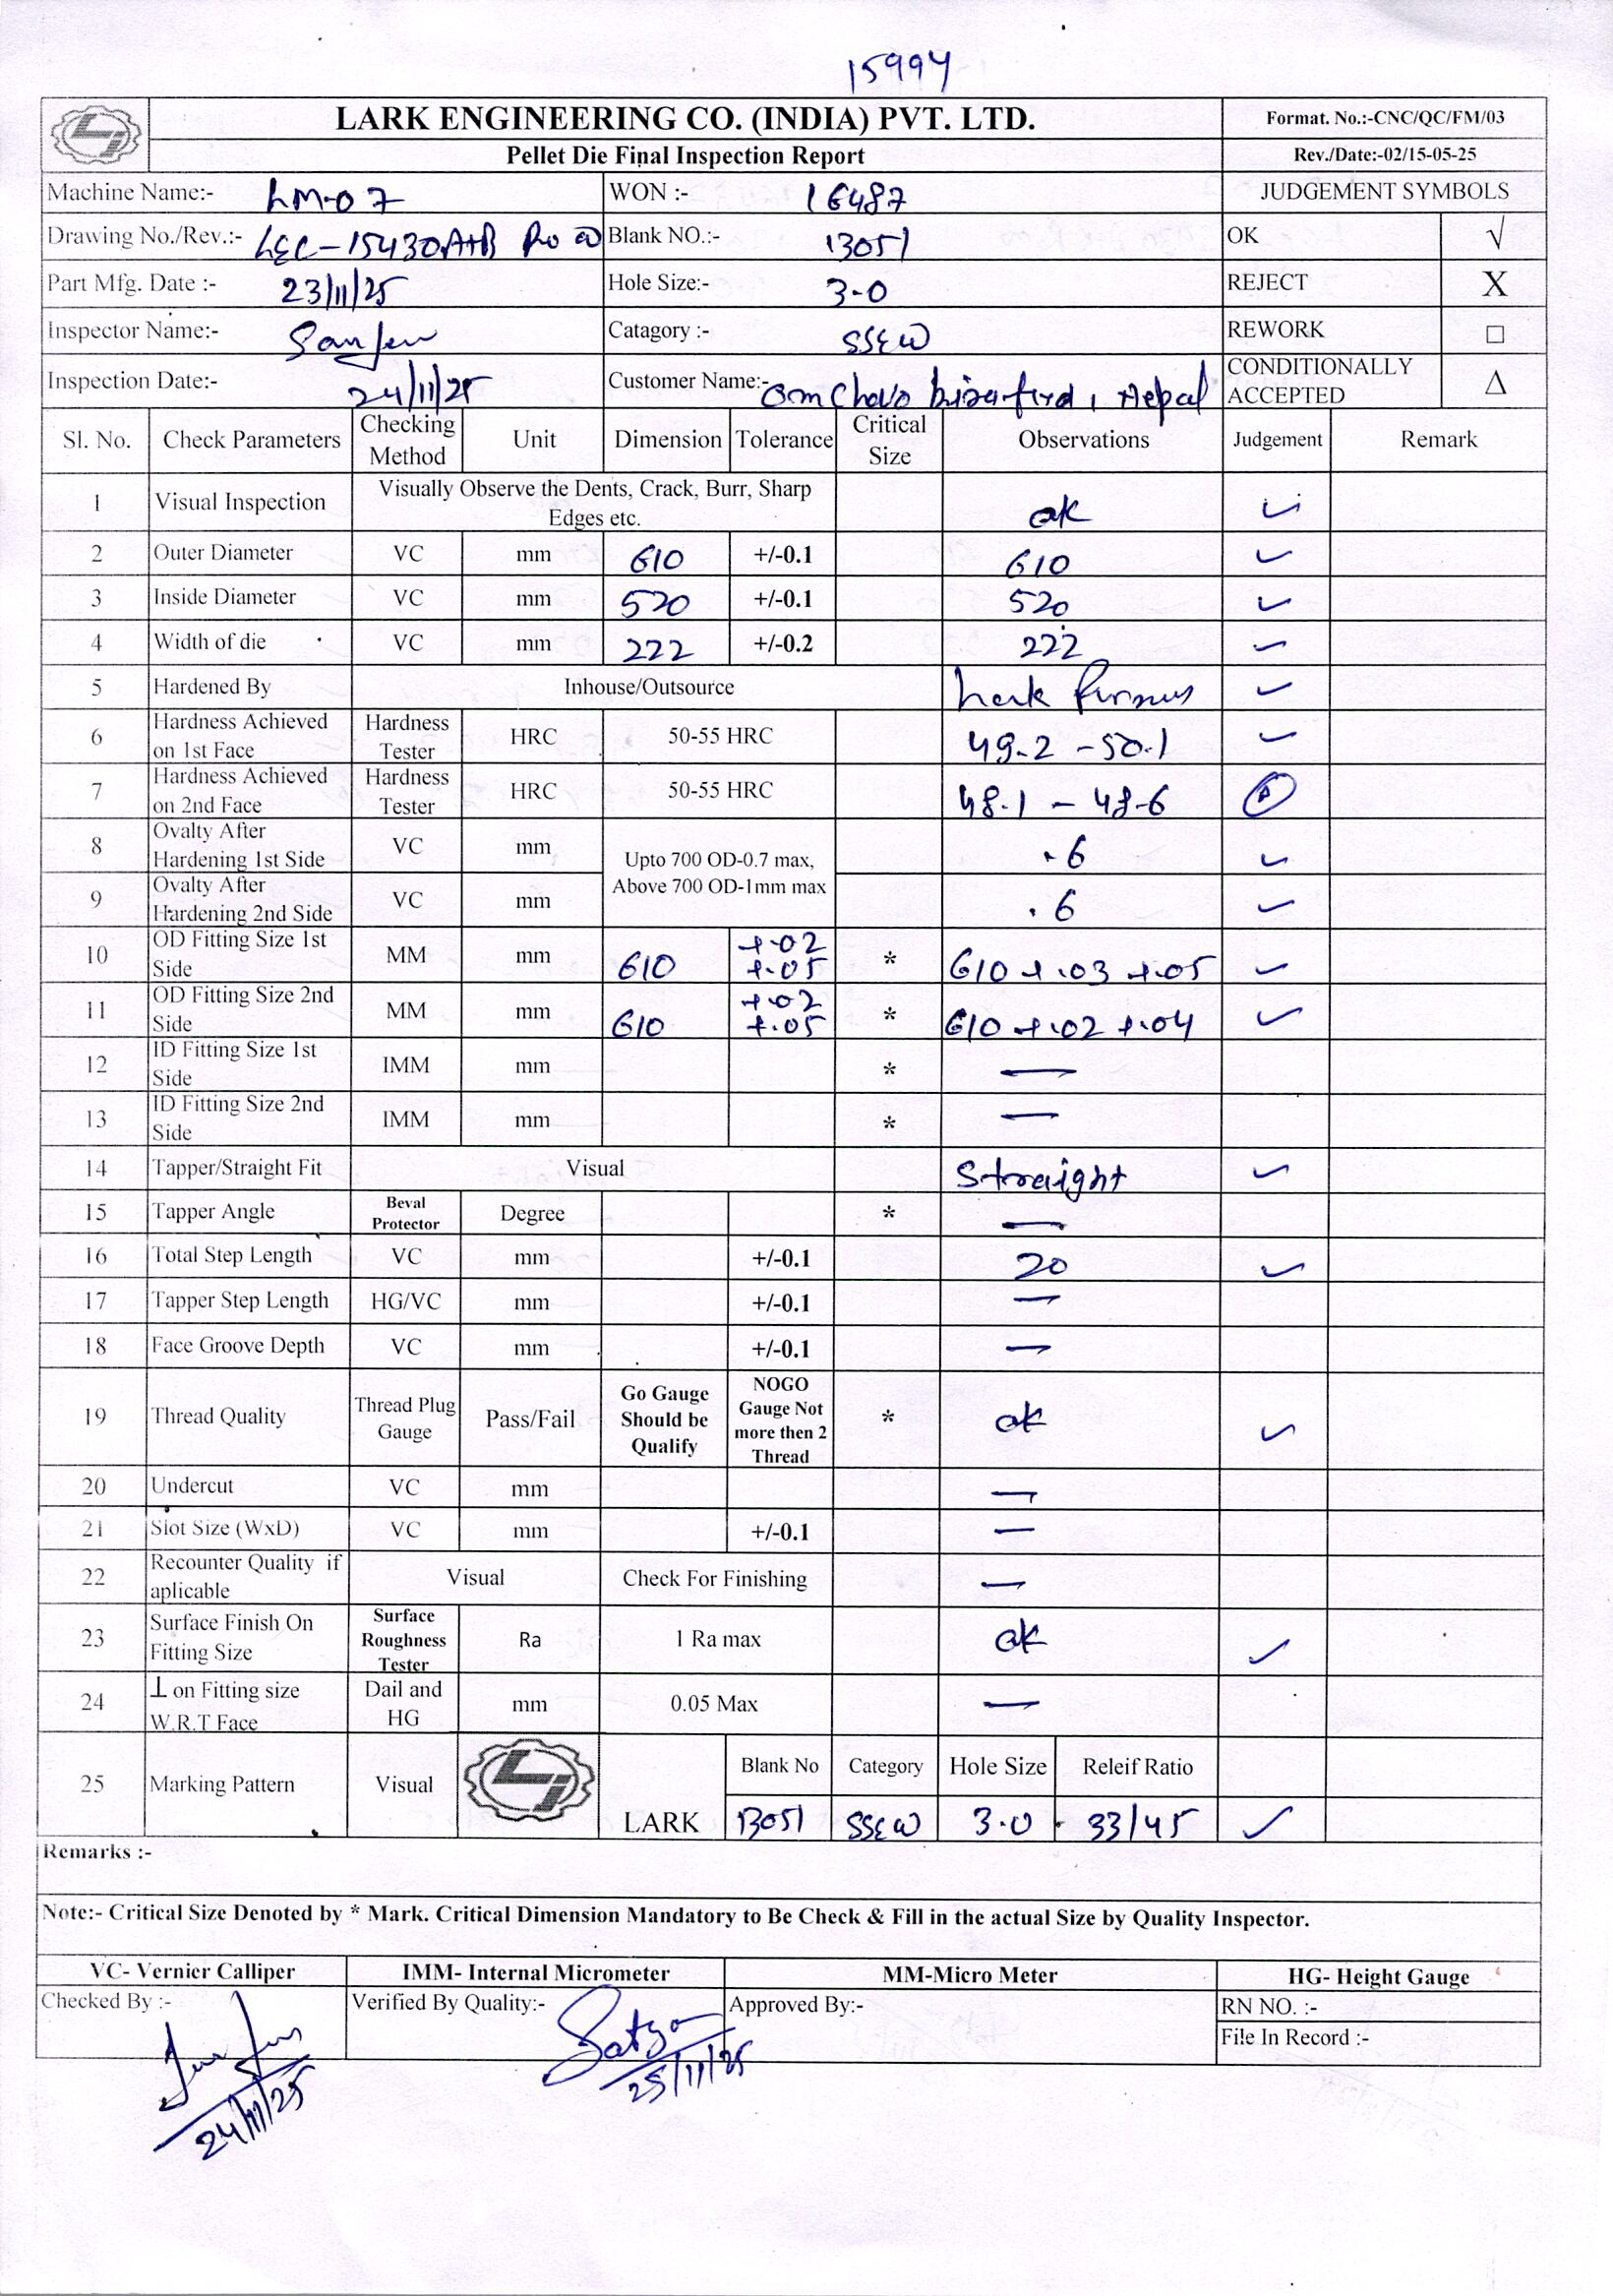 15994
LARK ENGINEERING CO. (INDIA) PVT. LTD.
Format. No.:-CNC/QC/FM/03
Pellet Die Final Inspection Report
Rev./Date:-02/15-05-25
Machine Name:- LM-07 WON :- 16487 JUDGEMENT SYMBOLS
Drawing No./Rev.:- LEC-15430A+B Blank NO.:- 13051 OK √
Part Mfg. Date :- 23/11/25 Hole Size:- 3.0 REJECT X
Inspector Name:- Catagory :- SSEW REWORK □
Inspection Date:- 24/11/25 Customer Name:- Nepal CONDITIONALLY ACCEPTED Δ
Sl. No. Check Parameters Checking Method Unit Dimension Tolerance Critical Size Observations Judgement Remark
1 Visual Inspection Visually Observe the Dents, Crack, Burr, Sharp Edges etc. ok ✓
2 Outer Diameter VC mm 610 +/-0.1 610 ✓
3 Inside Diameter VC mm 520 +/-0.1 520 ✓
4 Width of die VC mm 222 +/-0.2 222 ✓
5 Hardened By Inhouse/Outsource Lark ✓
6 Hardness Achieved on 1st Face Hardness Tester HRC 50-55 HRC 49.2 - 50.1 ✓
7 Hardness Achieved on 2nd Face Hardness Tester HRC 50-55 HRC 48.1 - 48.6
8 Ovalty After Hardening 1st Side VC mm Upto 700 OD-0.7 max, Above 700 OD-1mm max .6 ✓
9 Ovalty After Hardening 2nd Side VC mm .6 ✓
10 OD Fitting Size 1st Side MM mm 610 +.02 +.05 * 610 +.03 +.05 ✓
11 OD Fitting Size 2nd Side MM mm 610 +.02 +.05 * 610 +.02 +.04 ✓
12 ID Fitting Size 1st Side IMM mm * —
13 ID Fitting Size 2nd Side IMM mm * —
14 Tapper/Straight Fit Visual Straight ✓
15 Tapper Angle Beval Protector Degree * —
16 Total Step Length VC mm +/-0.1 20 ✓
17 Tapper Step Length HG/VC mm +/-0.1 —
18 Face Groove Depth VC mm +/-0.1 —
19 Thread Quality Thread Plug Gauge Pass/Fail Go Gauge Should be Qualify NOGO Gauge Not more then 2 Thread * ok ✓
20 Undercut VC mm —
21 Slot Size (WxD) VC mm +/-0.1 —
22 Recounter Quality if aplicable Visual Check For Finishing —
23 Surface Finish On Fitting Size Surface Roughness Tester Ra 1 Ra max ok ✓
24 ⊥ on Fitting size W.R.T Face Dail and HG mm 0.05 Max —
25 Marking Pattern Visual LARK Blank No Category Hole Size Releif Ratio
13051 SSEW 3.0 33/45 ✓
Remarks :-
Note:- Critical Size Denoted by * Mark. Critical Dimension Mandatory to Be Check & Fill in the actual Size by Quality Inspector.
VC- Vernier Calliper IMM- Internal Micrometer MM-Micro Meter HG- Height Gauge
Checked By :- Verified By Quality:- Approved By:- RN NO. :-
File In Record :-
Satya
24/11/25 25/11/25